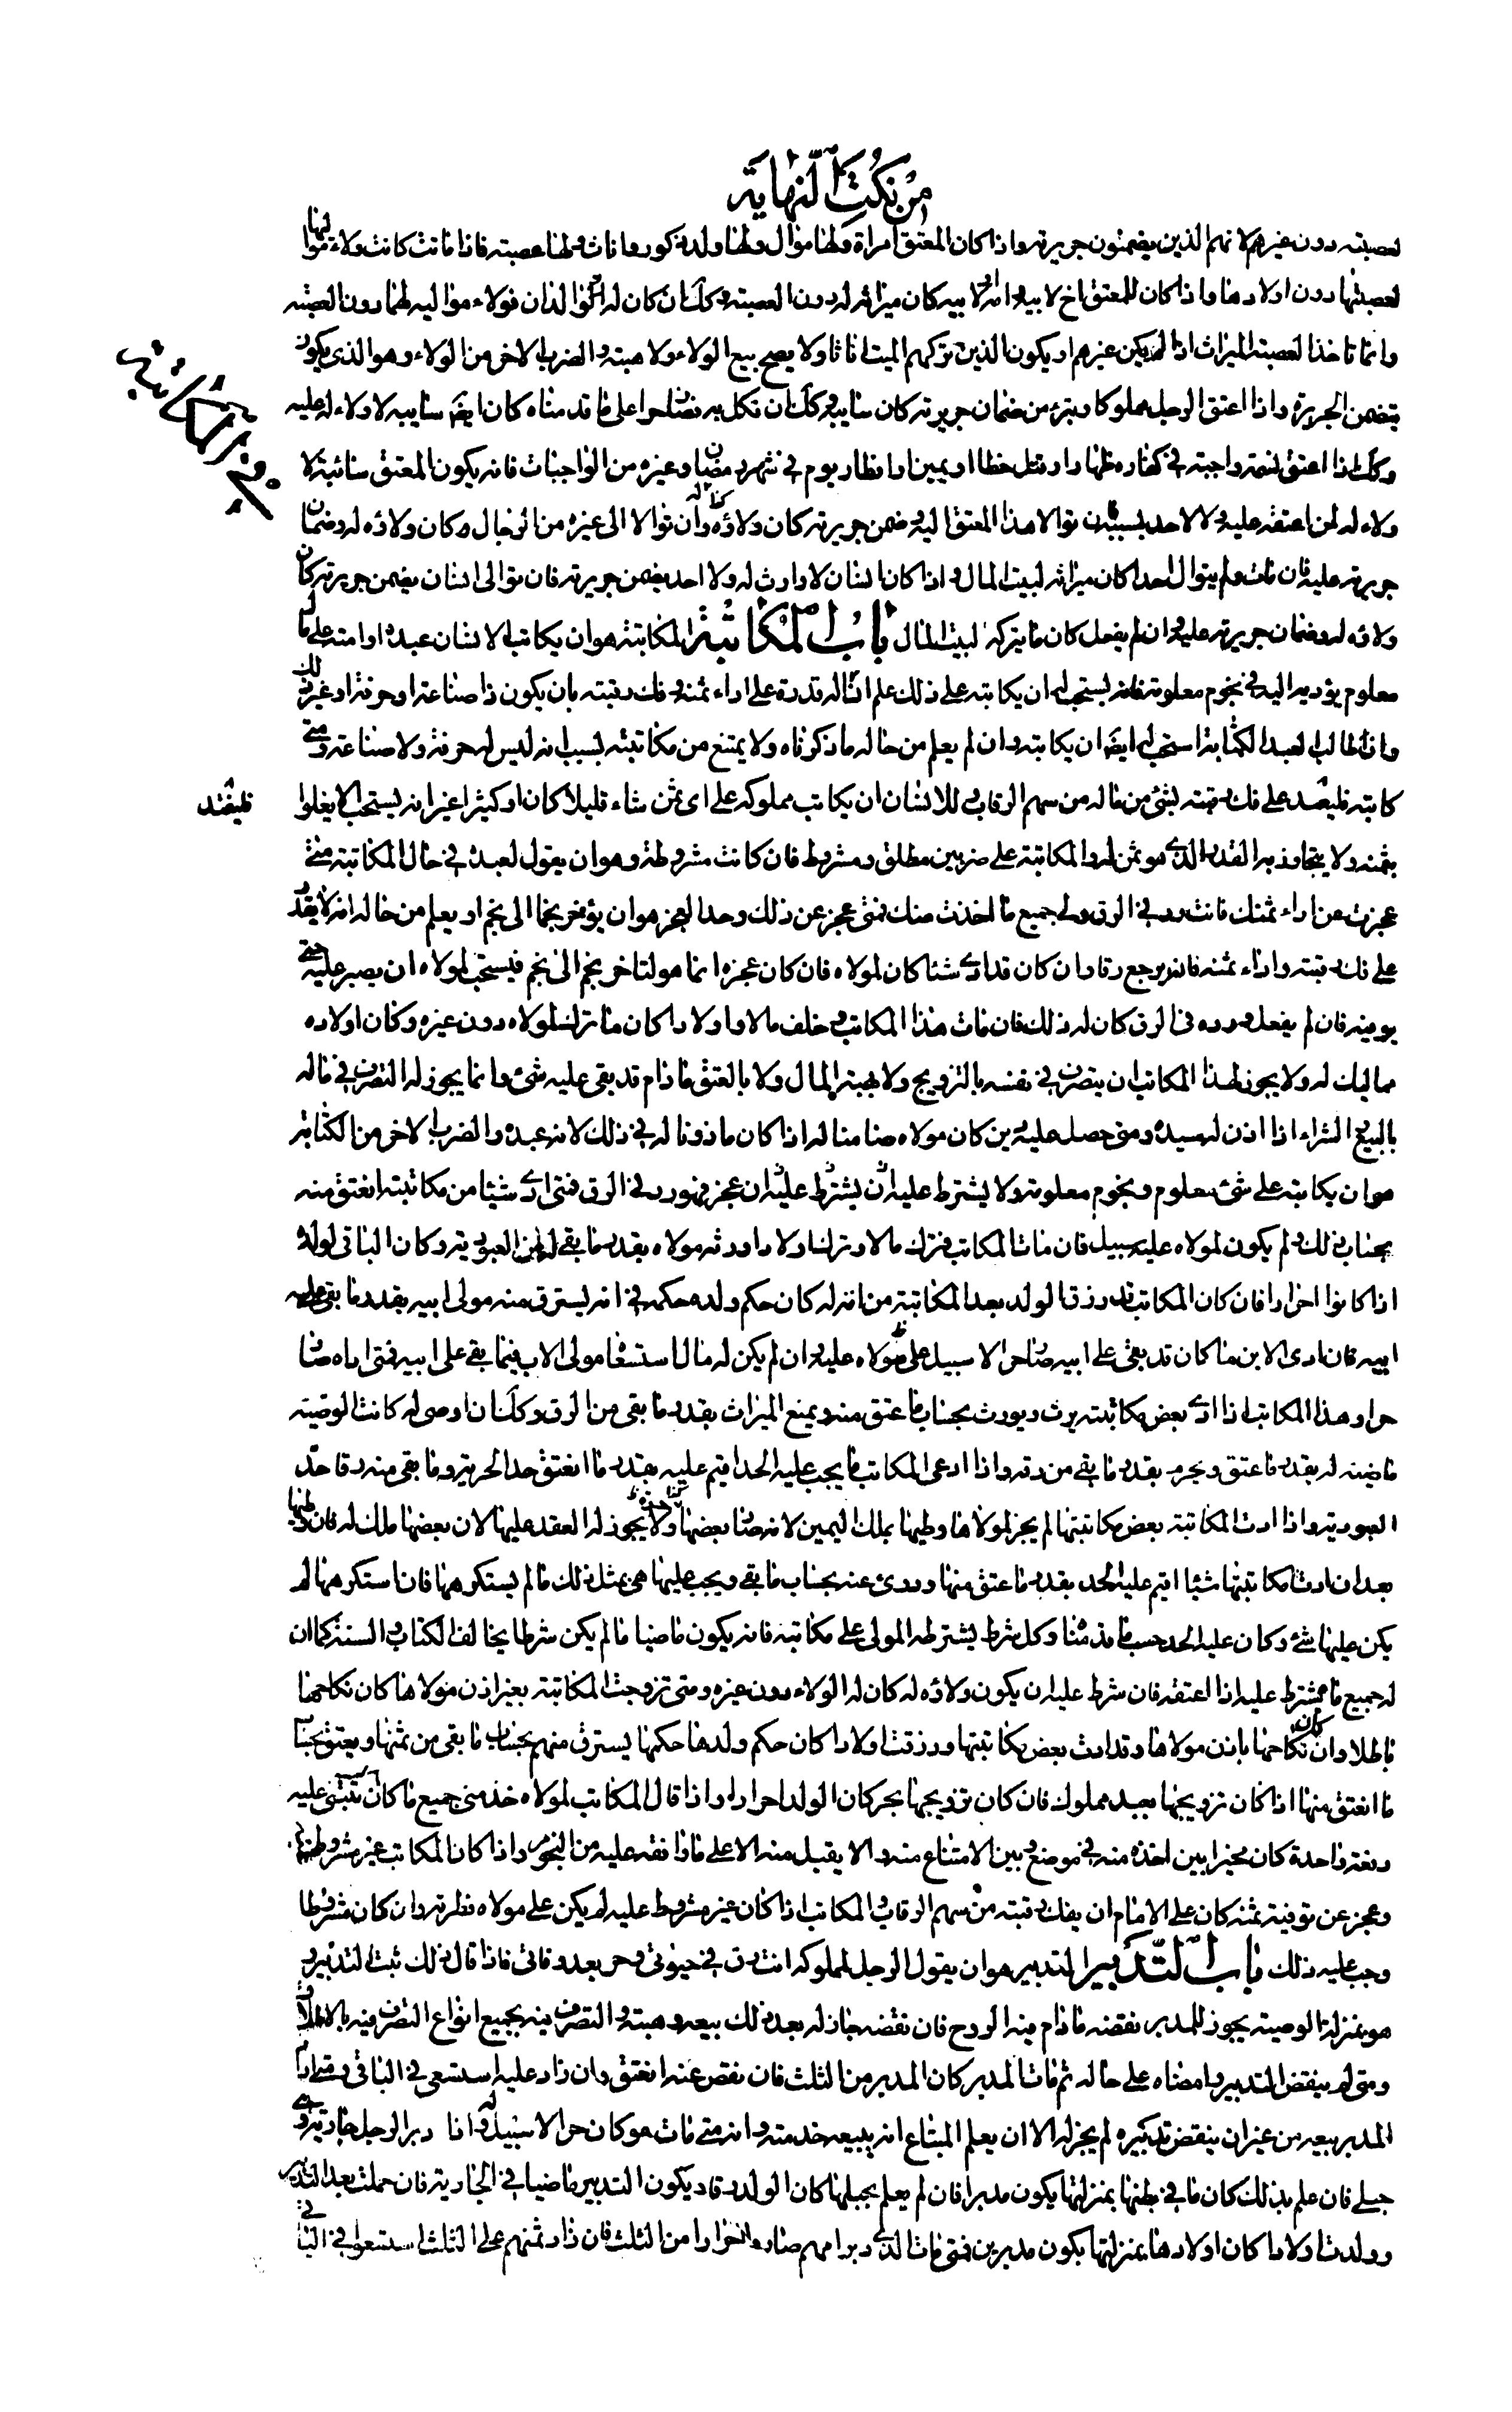 من نكت النهاية
لعصبته دون غيرهم لانهم الذين يضمنون جريرته واذا كان المعتق امراة ولها موال ولها ولد ذكور واناث ولها عصبته فاذا ماتت كانت ولاء مواليها
لعصبتها دون اولادها واذا كان للمعتق اخ لابيه وامه ولابيه كان ميراثه له دون العصبة وكك ان كان له اخوا لذان فولاء مواليه لهما دون العصبة
وانما تاخذ العصبة الميراث اذا لم يكن غيرهم او يكون الذين تركهم الميت اناثا ولا يصح بيع الولاء ولا هبته والضرب الاخر من الولاء وهو الذي يكون
بتضمن الجريرة واذا اعتق الرجل مملوكا وتبرء من ضمان جريرته كان سايبة وكك ان نكل به فصار حرا على ما قدمناه كان ايضا سايبة لا ولاء له عليه
وكك اذا اعتق نسمة واجبة في كفارة ظهار او قتل خطا او يمين او افطار يوم في شهر رمضان او غيره من الواجبات فانه يكون المعتق سائبة لا
ولاء له لمن اعتقه عليه ولا لاحد بسببه فان توالا هذا المعتق اليه وضمن جريرته كان ولاؤه له وان توالا الى غيره من الرجال كان ولاؤه له وضمان
جريرته عليه فان مات ولم يتوال احدا كان ميراثه لبيت المال واذا كان انسان لا وارث له ولا احد يضمن جريرته فان توالى انسان يضمن جريرته كان
ولاؤه له وضمان جريرته عليه وان لم يفعل كان ما يتركه لبيت المال باب المكاتبة المكاتبة هو ان يكاتب الانسان عبده او امته على مال
معلوم يؤديه اليه في نجوم معلومة فانه يستحب له ان يكاتبه على ذلك علم ان له قدرة على اداء ثمنه وفك رقبته بان يكون ذا صناعة او حرفة او غير ذلك
واذا طالب العبد الكتابة استحب له ايضا ان يكاتبه وان لم يعلم من حاله ما ذكرناه ولا يمتنع من مكاتبته بسبب انه ليس له حرفة ولا صناعة ومتى
كاتبه فليعنه على فك رقبته بشئ من ماله من سهم الرقاب وللانسان ان يكاتب مملوكه على اى ثمن شاء قليلا كان او كثيرا غير انه يستحب الا يغلوا
بثمنه ولا يتجاوز به القدر الذي هو ثمن له والمكاتبة على ضربين مطلق ومشروط فان كانت مشروطة وهو ان يقول لعبده في حال المكاتبة متى
عجزت عن اداء ثمنك فانت رد في الرق ولى جميع ما اخذت منك فمتى عجز عن ذلك وحد العجز هو ان يؤخر نجما الى نجم او يعلم من حاله انه لا يقدر
على فك رقبته واداء ثمنه فانه يرجع رقا وان كان قد ادى شيئا كان لمولاه فان كان عجزه انما هو لتاخر نجم الى نجم فيستحب لمولاه ان يصبر عليه حتى
يوفيه فان لم يفعل ورده في الرق كان له ذلك فان مات هذا المكاتب وخلف مالا واولادا كان ما ترك لمولاه دون غيره وكان اولاده
مماليك له ولا يجوز لهذا المكاتب ان يتصرف في نفسه بالتزويج ولا بهبة المال ولا بالعتق ما دام قد بقى عليه شئ وانما يجوز له التصرف في ماله
بالبيع والشراء اذا اذن له سيده ومتى حصل عليه دين كان مولاه ضامنا له اذا كان ماذونا له في ذلك لانه عبده والضرب الاخر من الكتابة
هو ان يكاتبه على شئ معلوم ونجوم معلومة ولا يشترط عليه ان يشترط عليه ان عجز فهو رد في الرق فمتى ادى شيئا من مكاتبته انعتق منه
بحساب ذلك ولم يكون لمولاه عليه سبيل فان مات المكاتب فترك مالا وترك اولادا ورثه مولاه بقدر ما بقى له من العبودية وكان الباقي لولده
اذا كانوا احرارا فان كان المكاتب قد رزق الولد بعد المكاتبة من امة له كان حكم ولده حكمه في انه يسترق منه مولى ابيه بقدر ما بقى على
ابيه فان ادى الابن ما كان قد بقى على ابيه صار حرا لا سبيل على مولاه عليه وان لم يكن له مال استسعاه مولى الاب فيما بقى على ابيه فمتى اداه صار
حرا وهذا المكاتب اذا ادى بعض مكاتبته يرث ويورث بحساب ما عتق منه ويمنع الميراث بقدر ما بقى من الرق وكك ان اوصى له كانت الوصية
ماضية له بقدر ما عتق وتحرم بقدر ما بقى من رقه واذا ادعى المكاتب ما يجب عليه الحد اقيم عليه بقدر ما انعتق حد الحرية وما بقى منه رقا حد
العبودية واذا ادت المكاتبة بعض مكاتبتها لم يجز لمولاها وطيها بملك اليمين لانه صار بعضها حرة ولا يجوز له العقد عليها لان بعضها ملك له فان وطيها
بعد ان ادت مكاتبتها شيئا اقيم عليه الحد بقدر ما عتق منها ودرئ عنه بحساب ما بقى ويجب عليها هي مثل ذلك ما لم يستكرهها فان استكرهها لم
يكن عليها شئ وكان عليه الحد حسب ما قدمنا وكل شرط يشترطه المولى على مكاتبه فانه يكون ماضيا ما لم يكن شرطا يخالف الكتاب والسنة كما ان
له جميع ما يشترط عليه اذا اعتقه فان شرط عليه ان يكون ولاؤه له كان له الولاء دون غيره ومتى تزوجت المكاتبة بغير اذن مولاها كان نكاحها
باطلا وان كان نكاحها باذن مولاها وقد ادت بعض مكاتبتها ورزقت اولادا كان حكم ولدها حكمها يسترق منهم بحساب ما بقى من ثمنها ويعتق بحساب
ما انعتق منها اذا كان تزويجها بعبد مملوك فان كان تزويجها بحر كان الولد احرارا واذا قال المكاتب لمولاه خذ مني جميع ما كاتبتني عليه
دفعة واحدة كان مخيرا بين اخذه منه في موضع وبين الامتناع منه والا يقبل منه الا على ما وافقه عليه من النجوم واذا كان المكاتب غير مشروط عليه
وعجز عن توفية ثمنه كان على الامام ان يفك رقبته من سهم الرقاب والمكاتب اذا كان غير مشروط عليه لم يكن على مولاه فطرته وان كان مشروطا
وجب عليه ذلك باب التدبير التدبير هو ان يقول الرجل لمملوكه انت رق في حيوتي وحر بعد وفاتي فاذا قال ذلك ثبت التدبير و
هو بمنزلة الوصية يجوز للمدبر نقضه ما دام فيه الروح فان نقضه جاز له بعد ذلك بيعه وهبته والتصرف فيه بجميع انواع التصرف فيه بالاملاك
ومتى لم ينقض التدبير وامضاه على حاله ثم مات المدبر كان المدبر من الثلث فان نقص عنه انعتق وان زاد عليه استسعى في الباقي ومتى اراد
المدبر بيعه من غير ان ينقض تدبيره لم يجز له الا ان يعلم المبتاع انه يبيعه خدمته وانه متى مات هو كان حرا لا سبيل له واذا دبر الرجل جارية وهى
حبلى فان علم بذلك كان ما في بطنها بمنزلتها يكون مدبرا فان لم يعلم بحبلها كان الولد رقا ويكون التدبير ماضيا في الجارية فان حملت بعد التدبير
وولدت اولادا كان اولادها بمنزلتها يكون مدبرين فمتى مات الذي دبر امهم صاروا احرارا من الثلث فان زاد ثمنهم على الثلث استسعوا في الباقي